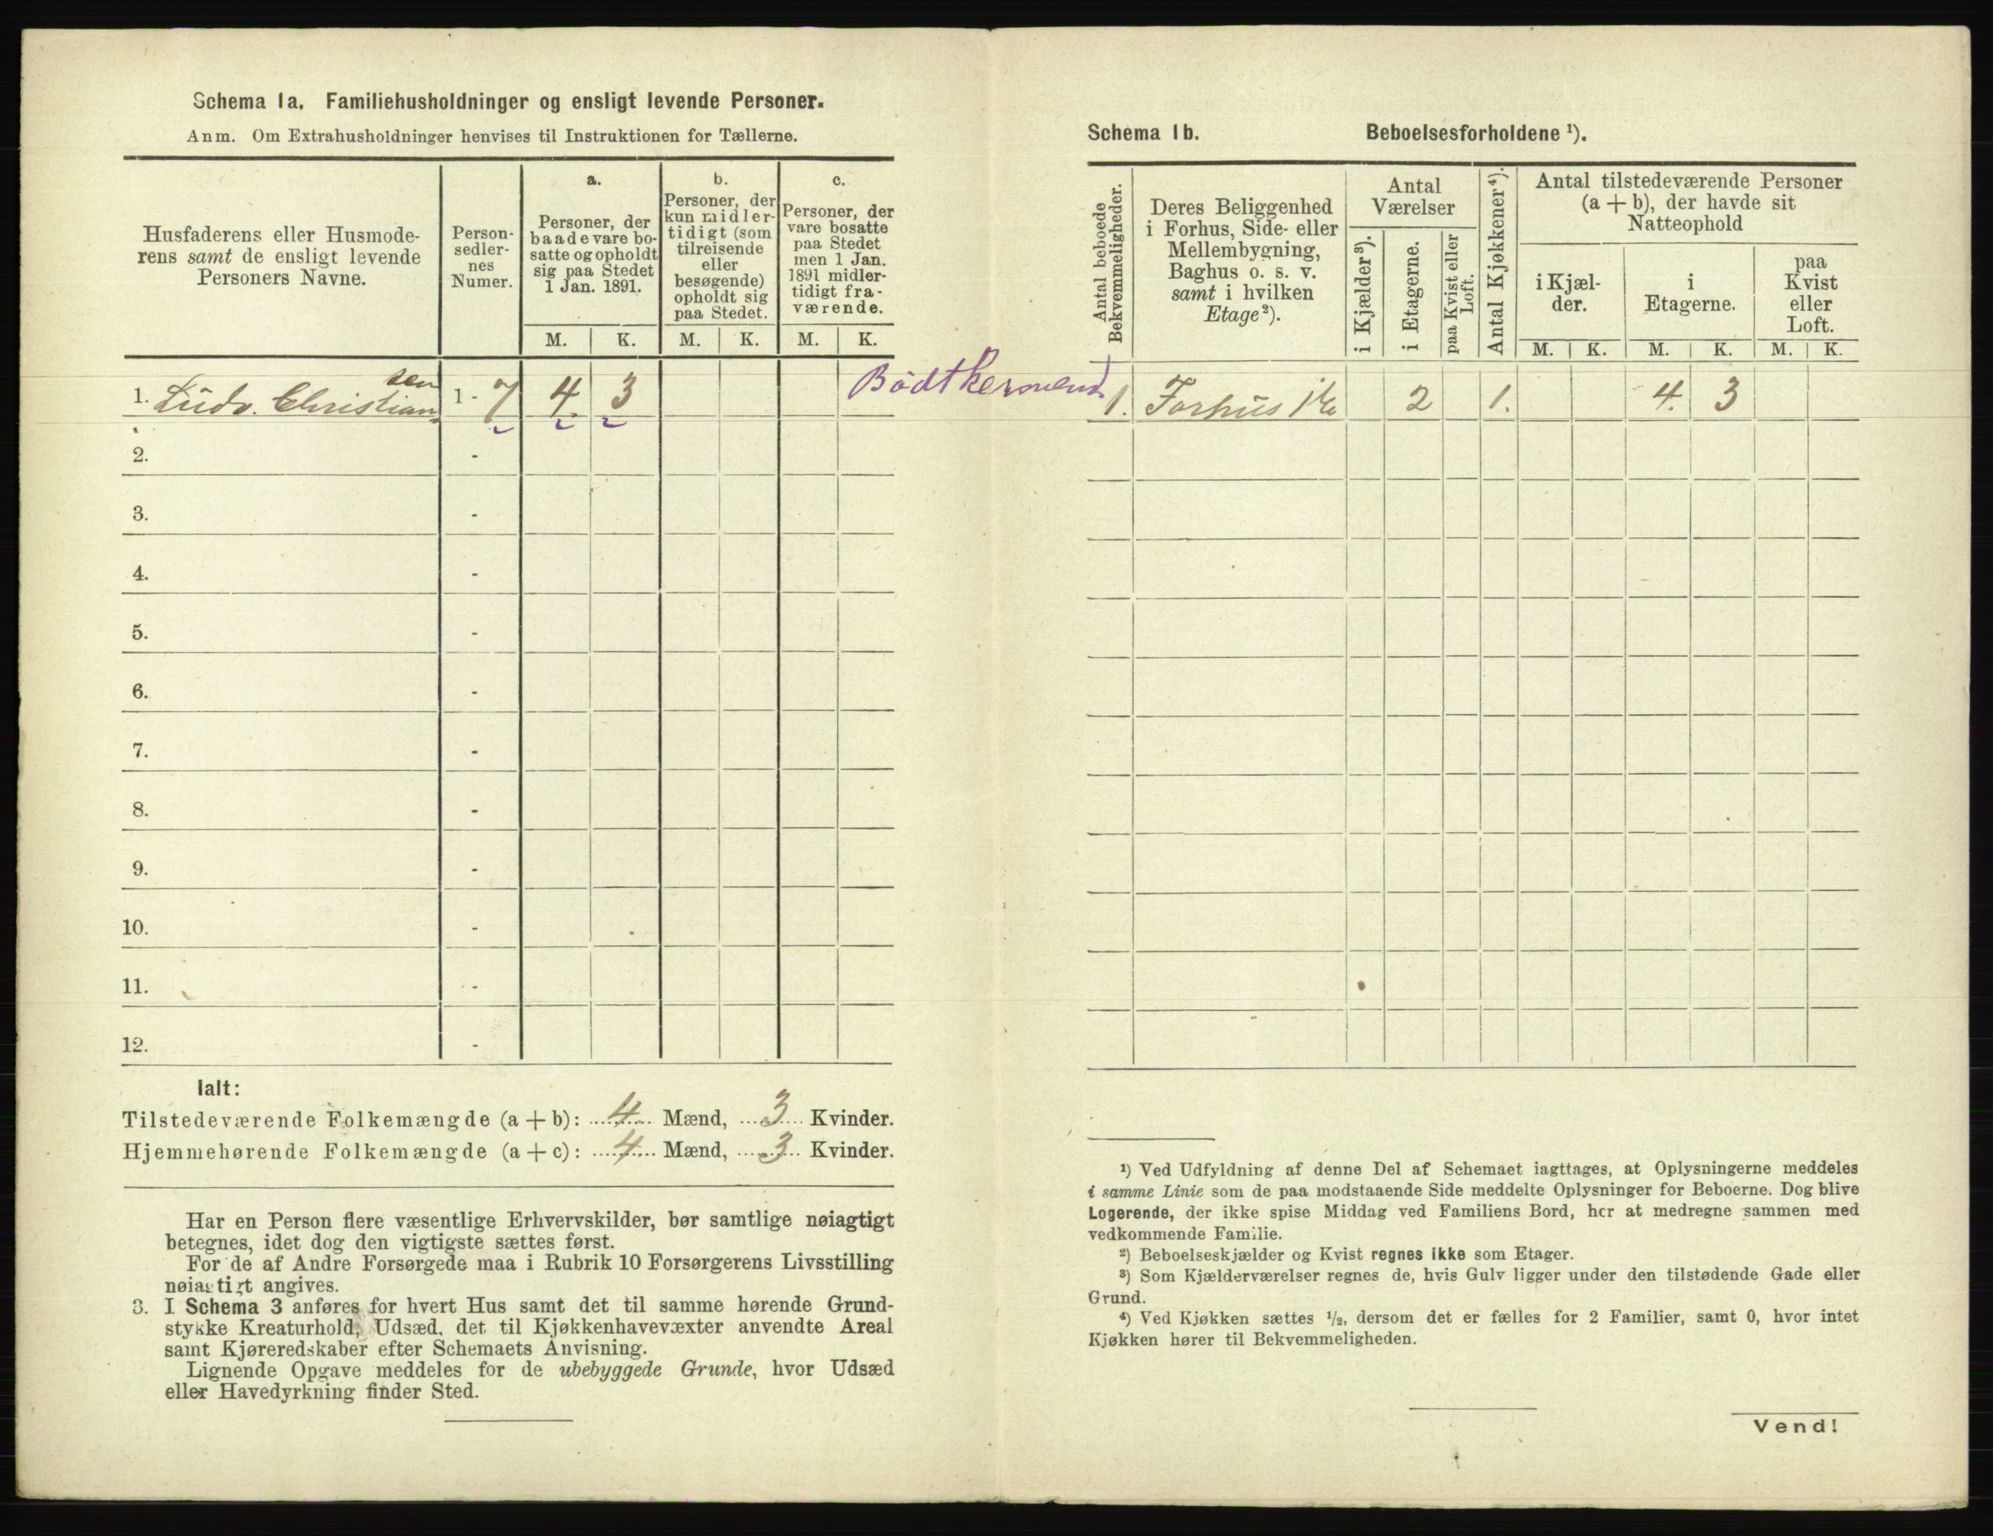 Schema 1a. Familiehusholdninger og ensligt levende Personer.
Anm. Om Extrahusholdninger henvises til Instruktionen for Tællerne.
Husfaderens eller Husmode-
rens samt de ensligt levende
Personers Navne.
Person-
sedler-
nes
Numer.
a.
Personer, der
baade vare bo-
satte og opholdt
sig paa Stedet
1 Jan. 1891.
b.
Personer, der
kun midler-
tidigt (som
tilreisende
eller
besøgende)
opholdt sig
paa Stedet.
c.
Personer, der
vare bosatte
paa Stedet
men 1 Jan.
1891 midler-
tidigt fra-
værende.
M. K. M. K. M. K.
1. Ludv. Christiansen 1 - 7 4. 3
2. -
3. -
4. -
5. -
6. -
7. -
8. -
9. -
10. -
11. -
12. -
Ialt:
Tilstedeværende Folkemængde (a + b): 4 Mænd, 3 Kvinder.
Hjemmehørende Folkemængde (a + c): 4 Mænd, 3 Kvinder.
Har en Person flere væsentlige Erhvervskilder, bør samtlige nøiagtigt
betegnes, idet dog den vigtigste sættes først.
For de af Andre Forsørgede maa i Rubrik 10 Forsørgerens Livsstilling
nøiagtigt angives.
3. I Schema 3 anføres for hvert Hus samt det til samme hørende Grund-
stykke Kreaturhold, Udsæd, det til Kjøkkenhavevæxter anvendte Areal
samt Kjøreredskaber efter Schemaets Anvisning.
Lignende Opgave meddeles for de ubebyggede Grunde, hvor Udsæd
eller Havedyrkning finder Sted.
Schema 1b. Beboelsesforholdene ¹).
Antal beboede
Bekvemmeligheder.
Deres Beliggenhed
i Forhus, Side- eller
Mellembygning,
Baghus o. s. v.
samt i hvilken
Etage²).
Antal
Værelser
i Kjælder³).
i Etagerne.
paa Kvist eller
Loft.
Antal Kjøkkener⁴).
Antal tilstedeværende Personer
(a + b), der havde sit
Natteophold
i Kjæl-
der.
i
Etagerne.
paa
Kvist
eller
Loft.
M. K. M. K. M. K.
1. Forhus 2 1. 4. 3
¹) Ved Udfyldning af denne Del af Schemaet iagttages, at Oplysningerne meddeles
i samme Linie som de paa modstaaende Side meddelte Oplysninger for Beboerne. Dog blive
Logerende, der ikke spise Middag ved Familiens Bord, her at medregne sammen med
vedkommende Familie.
²) Beboelseskjælder og Kvist regnes ikke som Etager.
³) Som Kjælderværelser regnes de, hvis Gulv ligger under den tilstødende Gade eller
Grund.
⁴) Ved Kjøkken sættes ½, dersom det er fælles for 2 Familier, samt 0, hvor intet
Kjøkken hører til Bekvemmeligheden.
Vend!